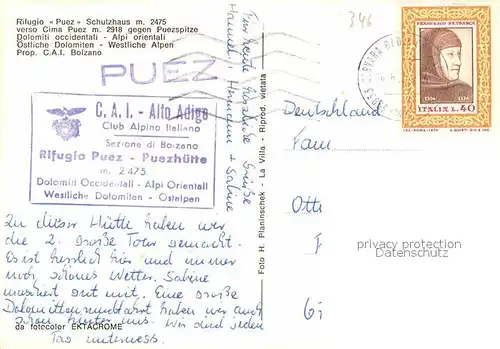 Rifugio «Puez» Schulzhaus m. 2475
verso Cima Puez m. 2918 gegen Puezspitze
Dolomiti occidentali - Alpi orientali
Östliche Dolomiten - Westliche Alpen
Prop. C.A.I. Bolzano
PUEZ
C. A. I. - Alto Adige
Club Alpino Italiano
Sezione di Bolzano
Rifugio Puez - Puezhütte
m. 2475
Dolomiti Occidentali - Alpi Orientali
Westliche Dolomiten - Ostalpen
Zu dieser Hütte haben wir
die 2. große Tour gemacht.
Es ist herrlich hier und immer
noch schönes Wetter. Sabine
marschiert gut mit. Eine große
Dolomitenrundfahrt haben wir auch
schon hinter uns. Wir sind jeden
Tag unterwegs.
da fotocolor EKTACROME
Für heute herzliche Grüße
+ Sabine
Foto H. Planinschek - La Villa - Riprod. vietata
346
FRANCESCO PETRARCA
1304 1374
ITALIA L. 40
Deutschland
Fam
Ott
privacy protection
Datenschutz